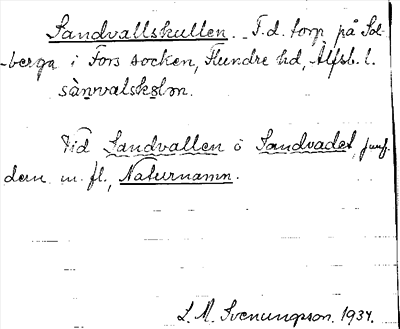 Sandvallskullen. F.d. torp på Sol-
-berga i Fors socken, Flundre hd, Älfsb. l.
sànnvalskȯlən.
Vid Sandvallen o Sandvadet, jmf.
dem m. fl., Naturnamn.
L. M. Svenungson. 1934.